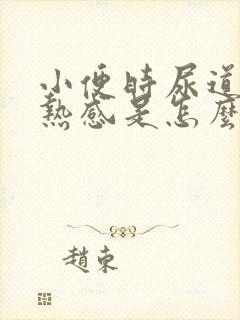 小便時尿道
熱感是怎麼
趙東